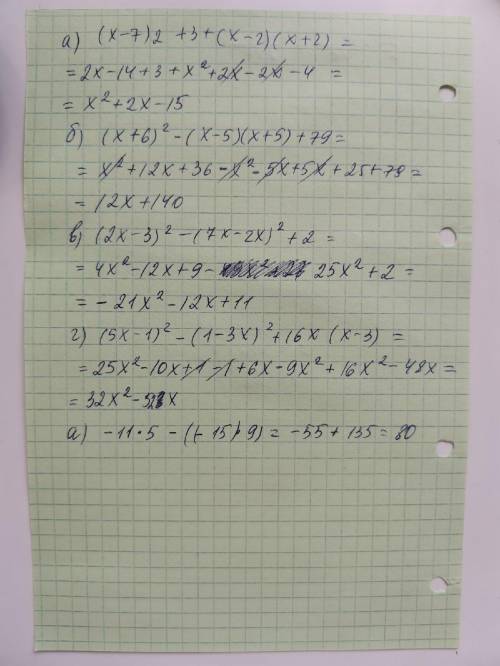 а) (x-7)2 +3+(x-2)(x+2) =
= 2x-14+3+x²+2x-2x-4 =
= x²+2x-15
б) (x+6)²-(x-5)(x+5)+79=
= x²+12x+36-x²-5x+5x+25+79=
= 12x+140
в) (2x-3)²-(7x-2x)²+2 =
= 4x²-12x+9- 25x²+2 =
= -21x²-12x+11
г) (5x-1)²-(1-3x)²+16x (x-3) =
= 25x²-10x+1-1+6x-9x²+16x²-48x=
= 32x²-52x
а) -11·5 -(-15·9)= -55+135=80